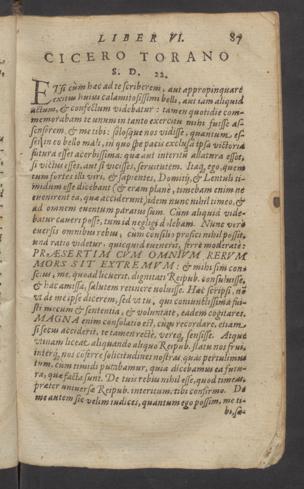 LIBER VI. 87
CICERO TORANO
S. D. 22.
ETSI cùm hac ad te scriberem, aut appropinquare
exitus huius calamitosissimi belli, aut iam aliquid
actum, & confectum videbatur: tamen quotidie com-
memorabam te unum in tanto exercitu mihi fuisse as-
sensorem, & me tibi: solosque nos vidisse, quantum es-
set in eo bello mali, in quo spe pacis exclusa ipsa victoria
futura esset acerbissima: qua aut interitum allatura esset,
si victus esses, aut si vicisses, servitutem. Itaq; ego, quem
tum fortes illi viri, & sapientes, Domitij, & Lentuli ti-
midum esse dicebant (& eram planè, timebam enim ne
evenirent ea, qua acciderunt) idem nunc nihil timeo, &
ad omnem eventum paratus sum. Cùm aliquid vide-
batur caveri posse, tum id negligi dolebam. Nunc verò
eversis omnibus rebus, cùm consilio profici nihil possit,
una ratio videtur, quicquid evenerit, ferre moderatè:
PRÆSERTIM CVM OMNIVM RERVM
MORS SIT EXTREMVM: & mihi sim con-
scius, me, quoad licuerit, dignitati Reipub. consuluisse,
& hac amissa, salutem retinere voluisse. Hac scripsi, nō
ut de me ipse dicerem, sed ut tu, qui coniunctissima fui-
sti mecum & sententia, & voluntate, eadem cogitares.
MAGNA enim consolatio est, cùm recordare, etiam
si secus acciderit, te tamen rectè, vereq; sensisse. Atque
utinam liceat aliquando aliquo Reipub. statu nos frui,
interq; nos conferre solicitudines nostras quas pertulimus
tum, cùm timidi putabamur, quia dicebamus ea futu-
ra, qua facta sunt. De tuis rebus nihil esse, quod timeas,
prater universæ Reipub. interitum, tibi confirmo. De
me autem sic velim iudices, quantum ego possim, me ti-
bi, sa-